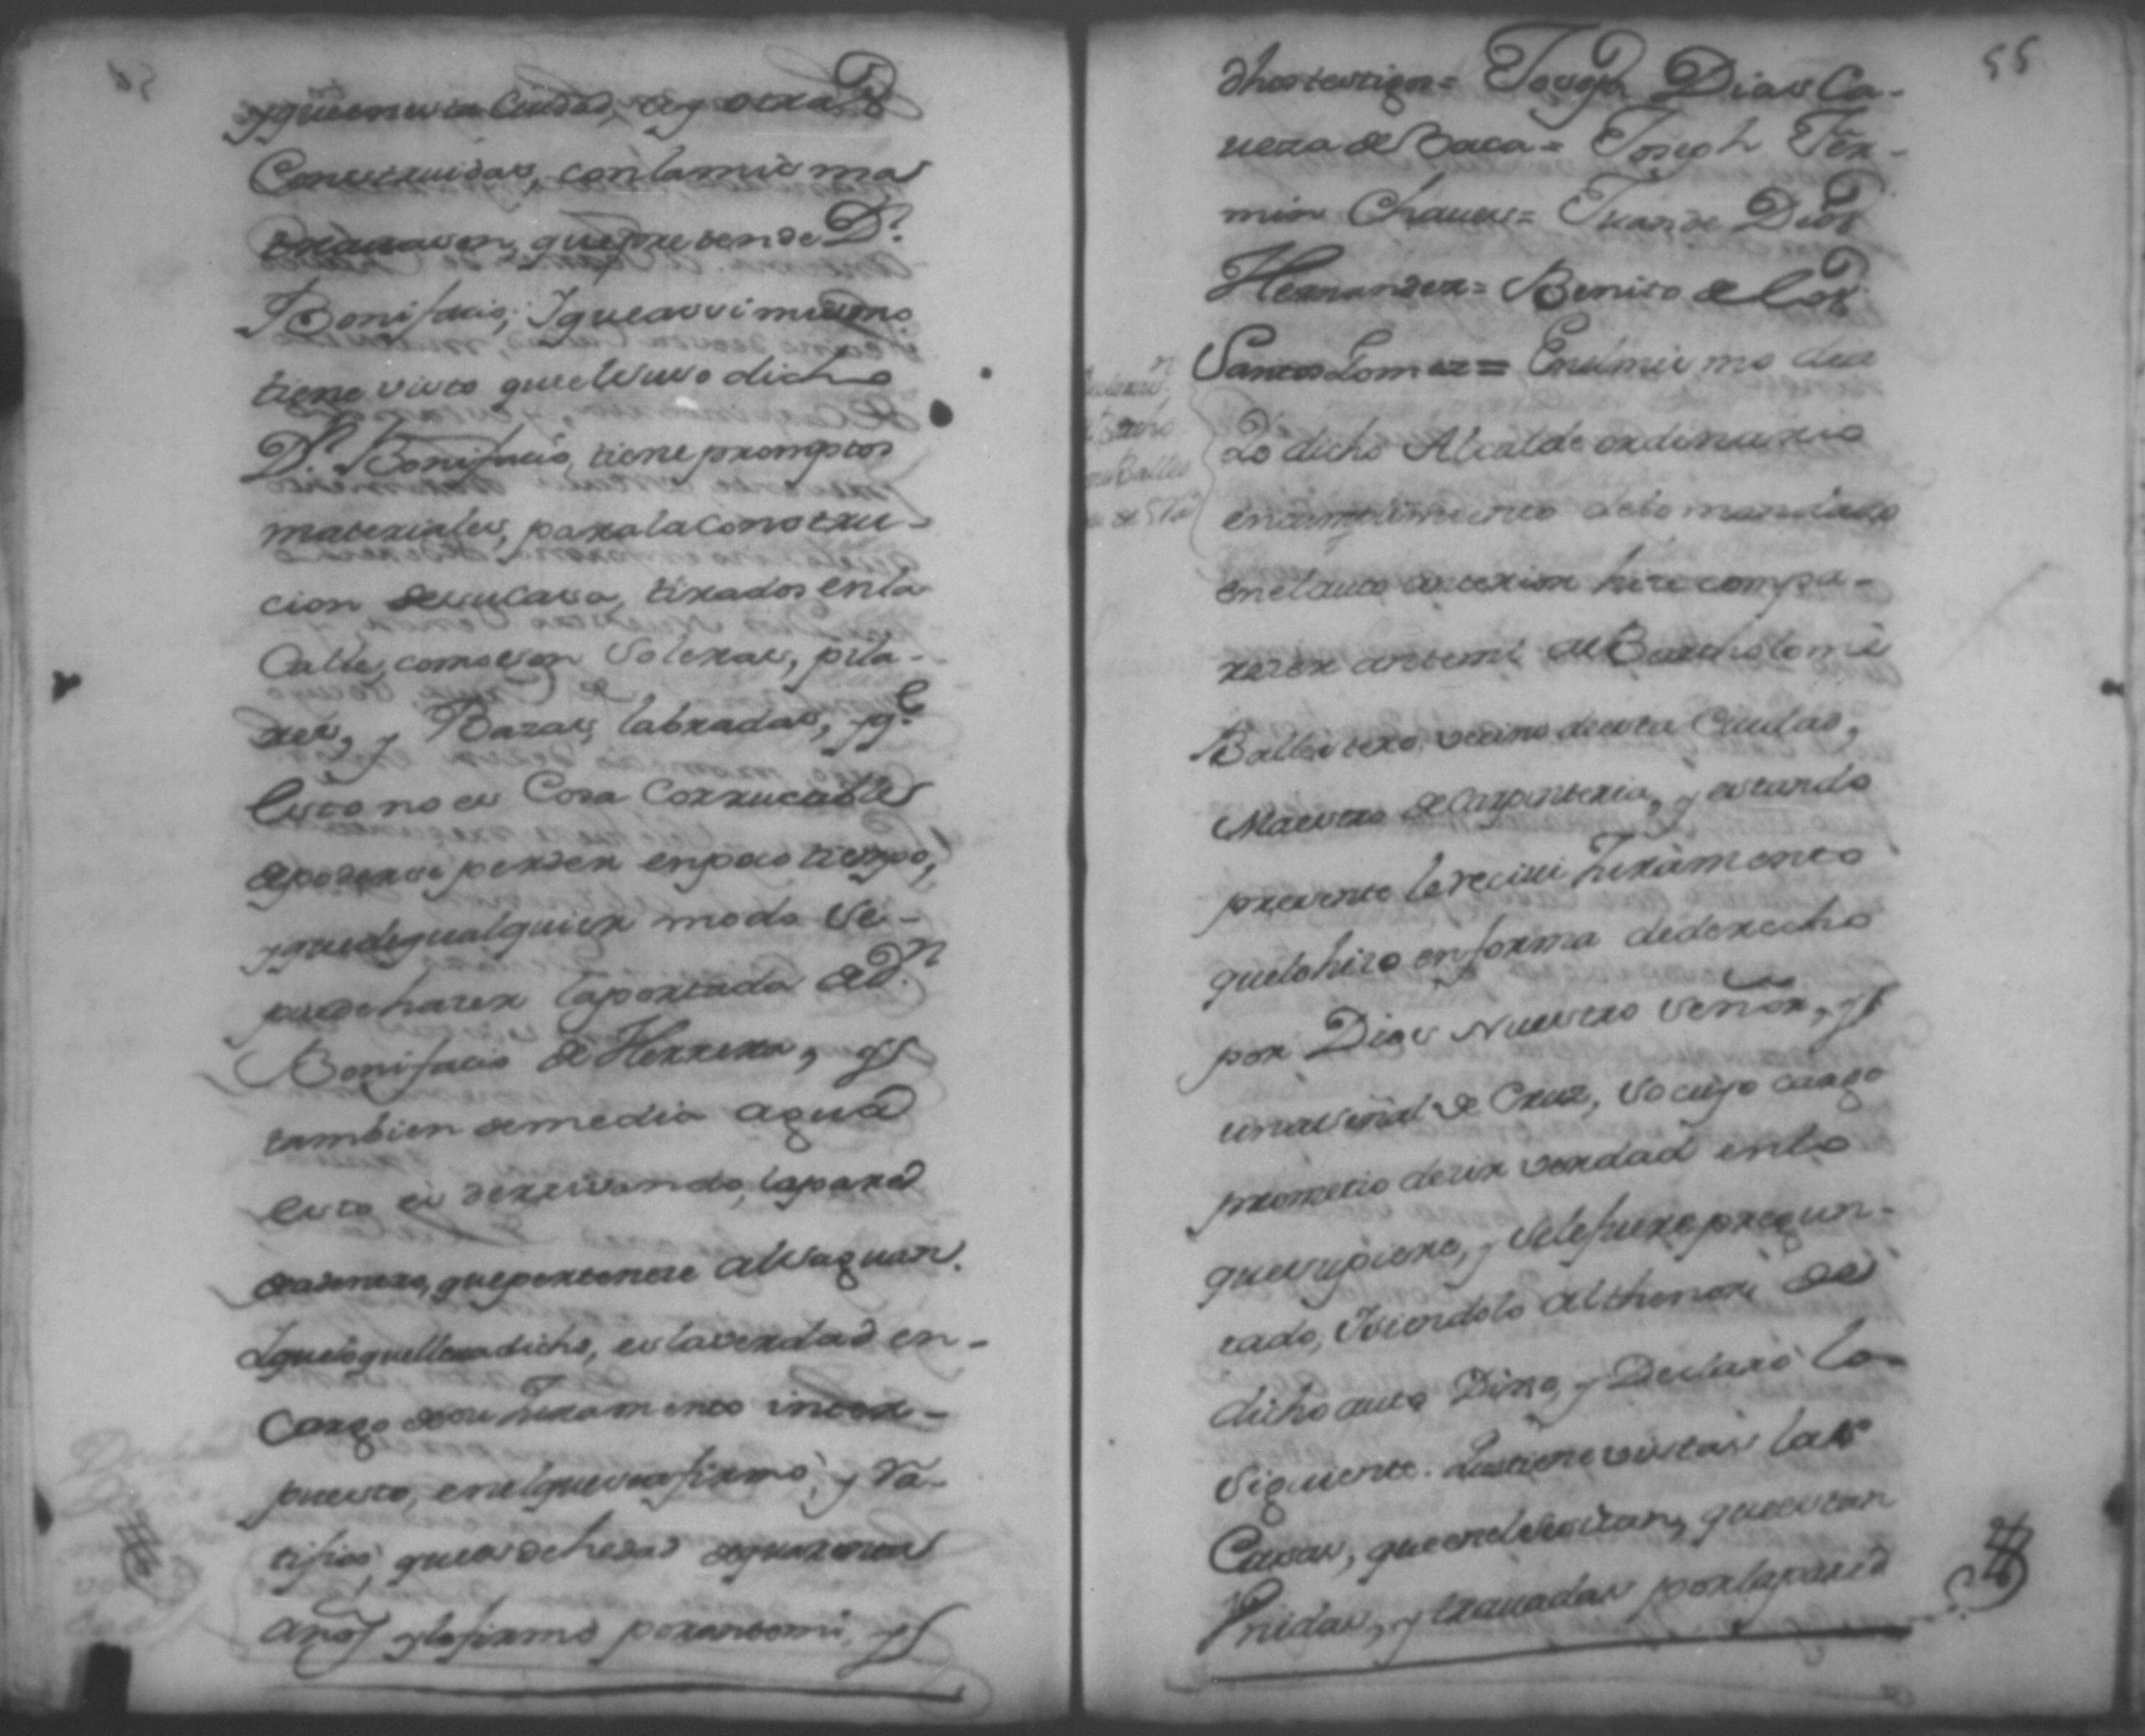 y que en esta Ciudad, ay otras
Construidas, con la misma
trauason, que pretende Dn.
Bonifacio; Y que assi mismo
tiene visto que el suso dicho
Dn. Bonifacio, tiene promptos
materiales, para la Constru-
cion de su casa, tirados en la
Calle, como son Soleras, pila-
res, y Bazas, labradas, y qe.
esto no es Cosa Corructible
de poderse perder en poco tiempo,
y que de qualquier modo se
puede hazer la portada de Dn.
Bonifacio de Herrera, y
tambien de media agua
esto es derrivando, la pared
de adentro, que pertenece al Saguan.
Y que lo que lleva dicho, es la verdad en
Cargo de su Juramento inter-
puesto, en el que se afirmó, y ra-
tificó, que es de hedad de quarenta
años y lo firmó por ante mi, y
55
dhos testigos = Joseph Dias Ca-
ueza de Baca = Joseph Fer-
min Chaues = Juan de Dios
Hernandez = Benito de los
Santos Gomez = En el mismo dia
Yo dicho Alcalde ordinario
en cumplimiento de lo mandado
en el auto anterior hize compa-
rezer ante mi a Bartholome
Ballestero vecino de esta Ciudad,
Maestro de Carpinteria, y estando
presente le reciui Juramento
que lo hizo en forma de derecho
por Dios Nuestro Señor, y
una señal de Cruz, so cuyo cargo
prometio dezir verdad en lo
que supiere, y se le fuere pregun-
tado, Y siendolo al thenor de
dicho auto Dixo, y Declaró lo
siguiente. Que tiene vistas las
Casas, que en el se citan, que estan
Vnidas, y trauadas por la pared